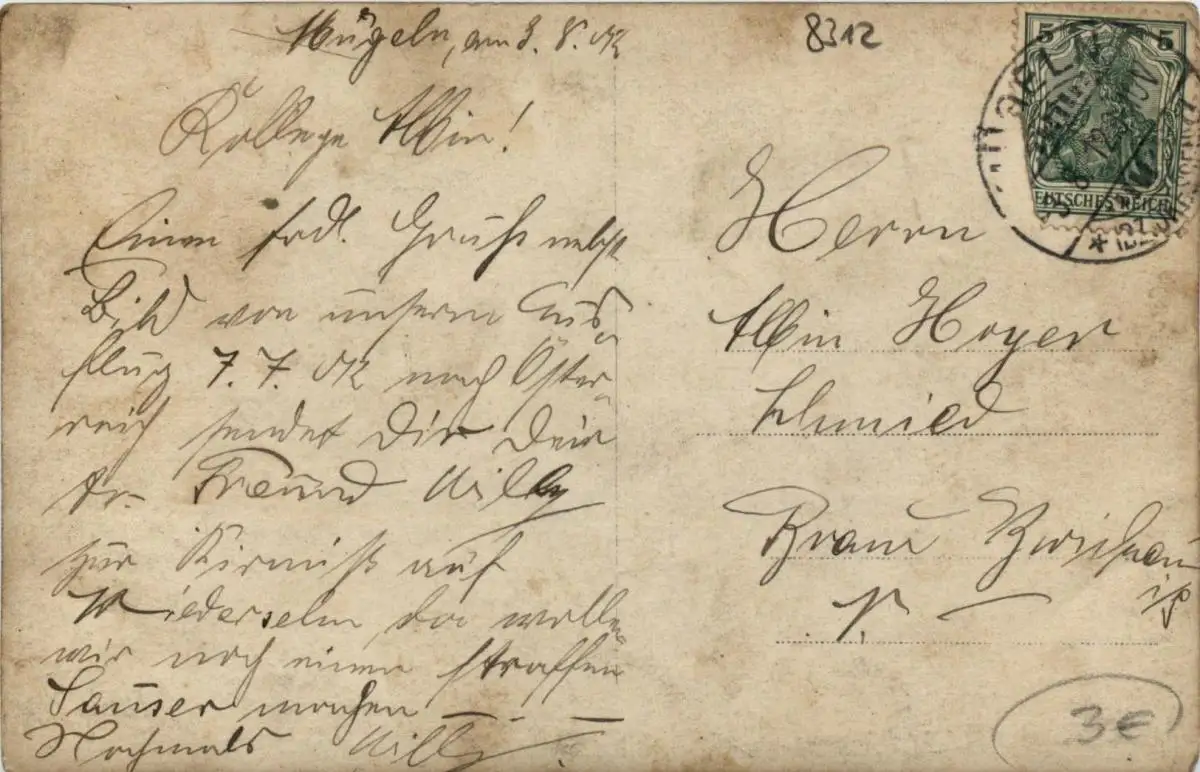 Mügeln, am 3. 8. 12
8312
Kollege Albin!
Einen frdl. Gruß nebst
Bild von unserm Aus-
flug 7. 7. 12 nach Öster-
reich sendet Dir Dein
tr. Freund Willy
zur Kirmiß auf
Wiedersehn, da wollen
wir noch einen straffen
Sauser machen
Nochmals Willy
5 5
DEUTSCHES REICH
MÜGELN
Herrn
Albin Hoyer
Schmied
3€